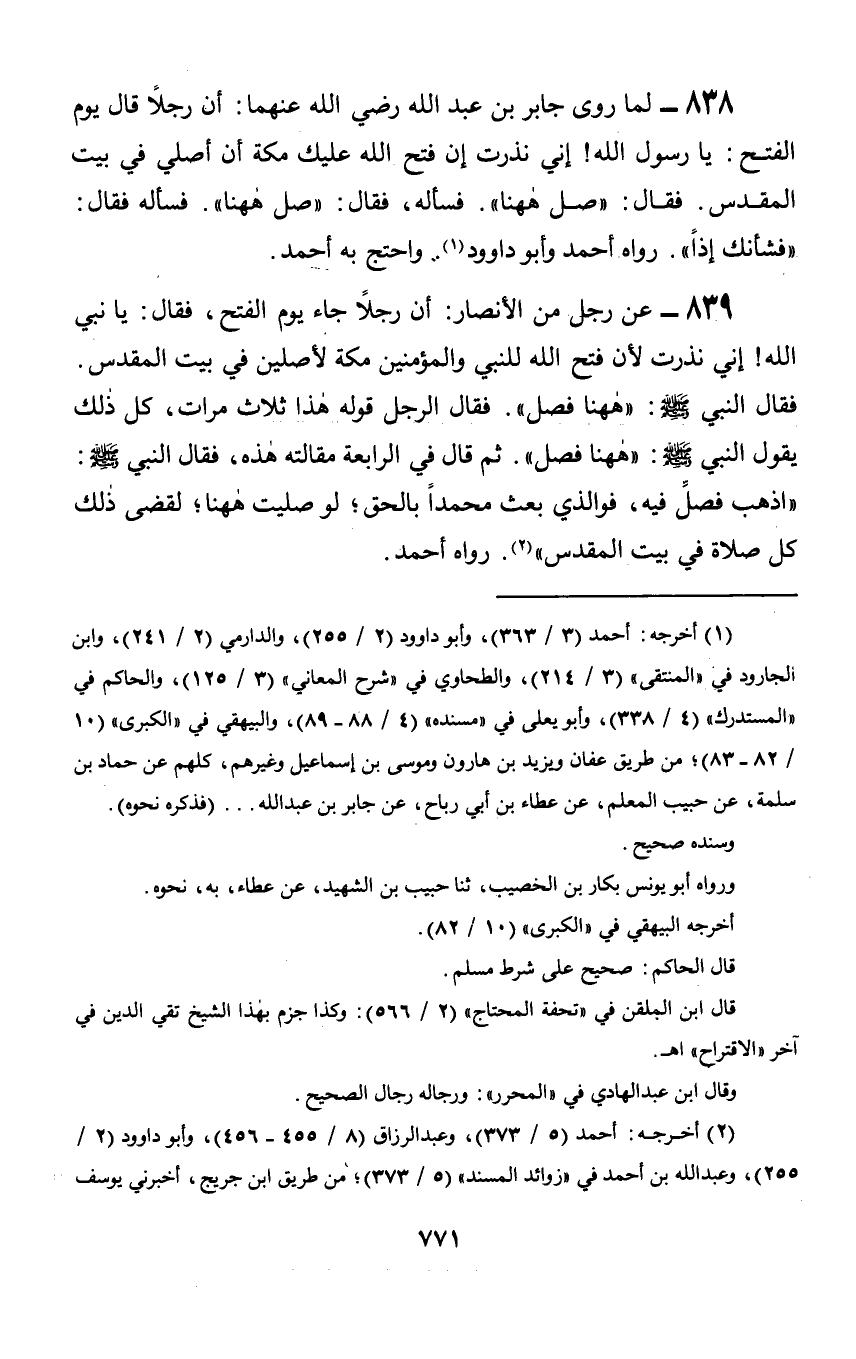 ٨٣٨ ـ لما روى جابر بن عبد الله رضي الله عنهما: أن رجلًا قال يوم
الفتح: يا رسول الله! إني نذرت إن فتح الله عليك مكة أن أصلي في بيت
المقدس. فقال: «صل هٰهنا». فسأله، فقال: «صل هٰهنا». فسأله فقال:
«فشأنك إذاً». رواه أحمد وأبو داوود(١). واحتج به أحمد.
٨٣٩ ـ عن رجل من الأنصار: أن رجلًا جاء يوم الفتح، فقال: يا نبي
الله! إني نذرت لأن فتح الله للنبي والمؤمنين مكة لأصلين في بيت المقدس.
فقال النبي ﷺ: «هٰهنا فصل». فقال الرجل قوله هٰذا ثلاث مرات، كل ذٰلك
يقول النبي ﷺ: «هٰهنا فصل». ثم قال في الرابعة مقالته هٰذه، فقال النبي ﷺ:
«اذهب فصلِّ فيه، فوالذي بعث محمداً بالحق؛ لو صليت هٰهنا؛ لقضى ذٰلك
كل صلاة في بيت المقدس»(٢). رواه أحمد.
(١) أخرجه: أحمد (٣ / ٣٦٣)، وأبو داوود (٢ / ٢٥٥)، والدارمي (٢ / ٢٤١)، وابن
الجارود في «المنتقى» (٣ / ٢١٤)، والطحاوي في «شرح المعاني» (٣ / ١٢٥)، والحاكم في
«المستدرك» (٤ / ٣٣٨)، وأبو يعلى في «مسنده» (٤ / ٨٨ ـ ٨٩)، والبيهقي في «الكبرى» (١٠
/ ٨٢ ـ ٨٣)؛ من طريق عفان ويزيد بن هارون وموسى بن إسماعيل وغيرهم، كلهم عن حماد بن
سلمة، عن حبيب المعلم، عن عطاء بن أبي رباح، عن جابر بن عبدالله... (فذكره نحوه).
وسنده صحيح.
ورواه أبو يونس بكار بن الخصيب، ثنا حبيب بن الشهيد، عن عطاء، به، نحوه.
أخرجه البيهقي في «الكبرى» (١٠ / ٨٢).
قال الحاكم: صحيح على شرط مسلم.
قال ابن الملقن في «تحفة المحتاج» (٢ / ٥٦٦): وكذا جزم بهٰذا الشيخ تقي الدين في
آخر «الاقتراح» اهـ.
وقال ابن عبدالهادي في «المحرر»: ورجاله رجال الصحيح.
(٢) أخرجه: أحمد (٥ / ٣٧٣)، وعبدالرزاق (٨ / ٤٥٥ ـ ٤٥٦)، وأبو داوود (٢ /
٢٥٥)، وعبدالله بن أحمد في «زوائد المسند» (٥ / ٣٧٣)؛ من طريق ابن جريج، أخبرني يوسف
٧٧١